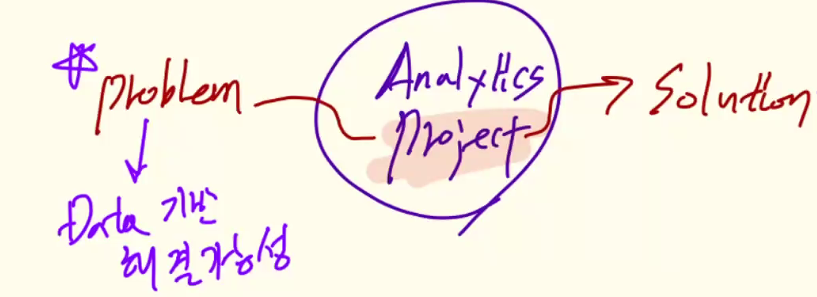 Problem
Analytics
Project
Solution
Data 기반
해결가능성